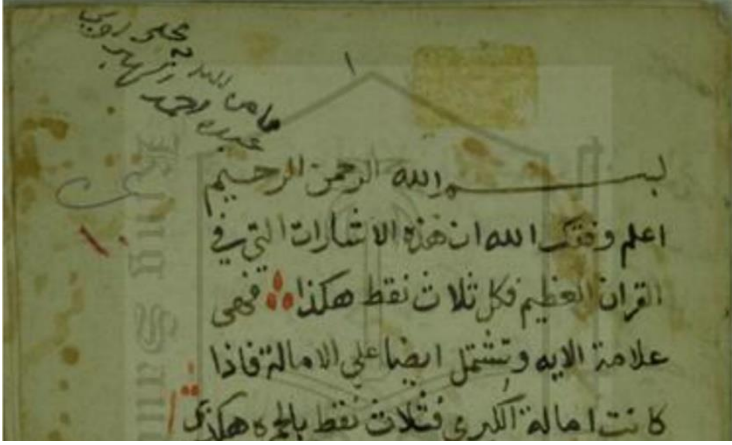 ١
بسم الله الرحمن الرحيم
اعلم وفقك الله ان هذه الاشارات التي في
القران العظيم فكل ثلاث نقط هكذا ∴ فهي
علامة الايه وتشتمل ايضا علي الامالة فاذا
كانت امالة الكبرى فثلاث نقط بالحمره هكذي